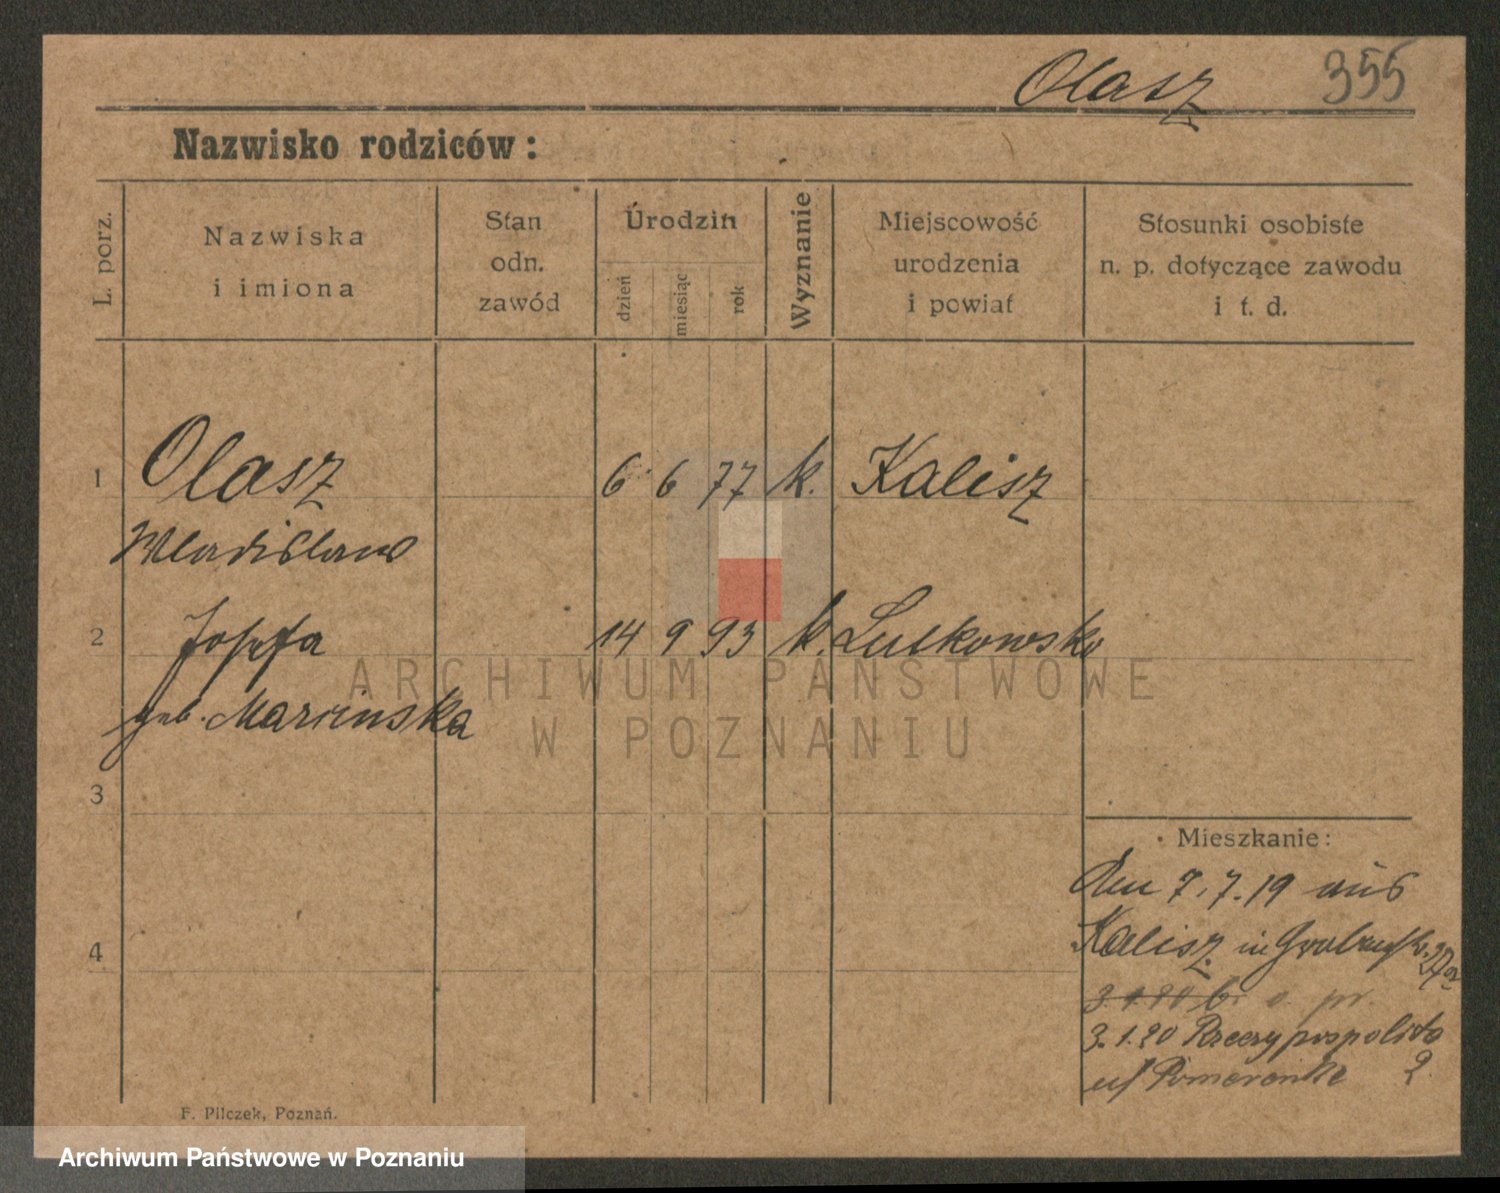 Olasz 355
Nazwisko rodziców:
L. porz.
Nazwiska
i imiona
Stan
odn.
zawód
Urodzin
dzień
miesiąc
rok
Wyznanie
Miejscowość
urodzenia
i powiat
Stosunki osobiste
n. p. dotyczące zawodu
i t. d.
1 Olasz 6 6 77 k. Kalisz
Wladislaus
2 Josefa 14 9 93 k. Lutkowsko
geb. Marcinska
3
4
Mieszkanie:
den 7.7.19 aus
Kalisz in 27a
3.1.20
3.1.20 Rzeczypospolita 2
Pomerenke
F. Pilczek, Poznań.
ARCHIWUM PAŃSTWOWE
W POZNANIU
Archiwum Państwowe w Poznaniu